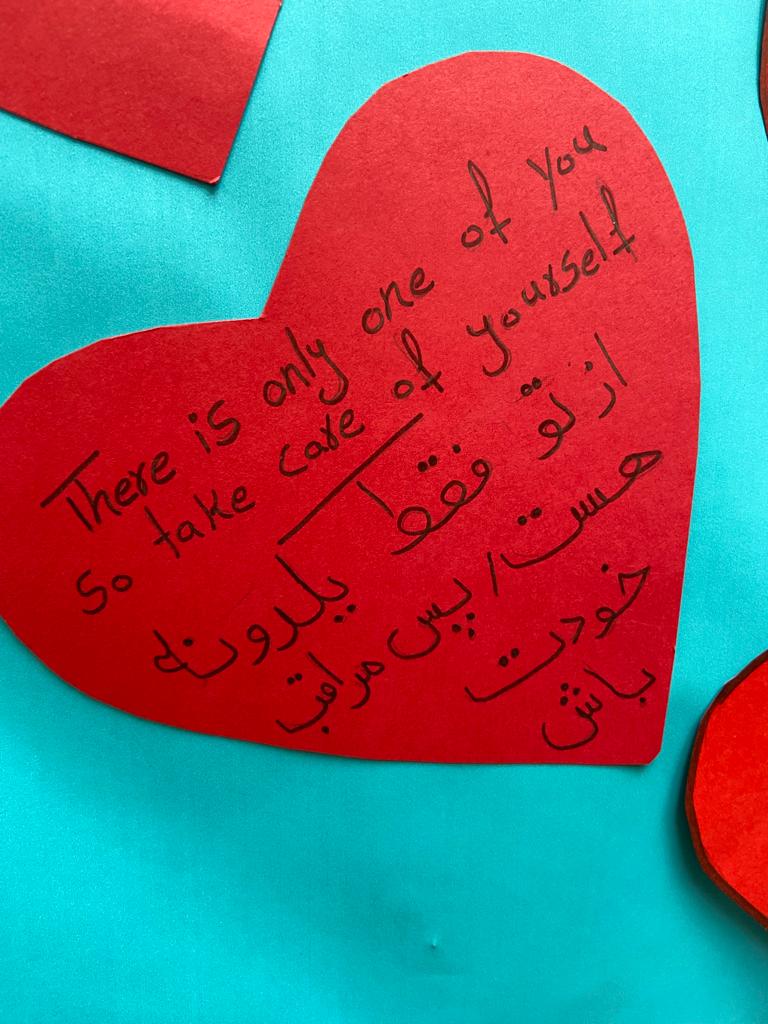 There is only one of you
so take care of yourself
از تو فقط یکدونه
هست/ پس مراقب
خودت
باش